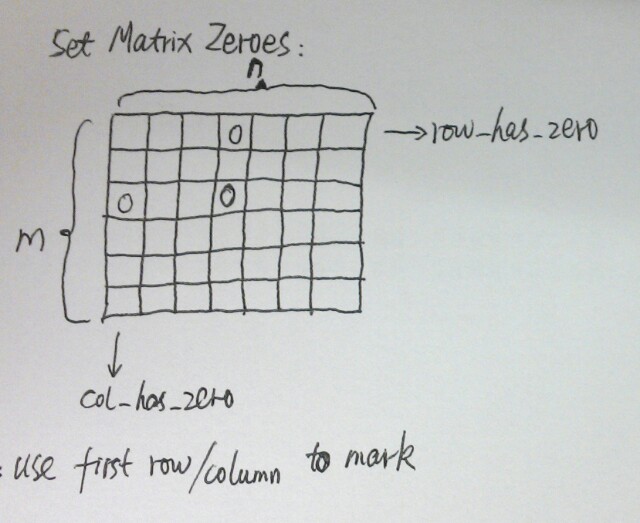 Set Matrix Zeroes:
n
0
→row_has_zero
0 0
m
↓
col_has_zero
: use first row/column to mark